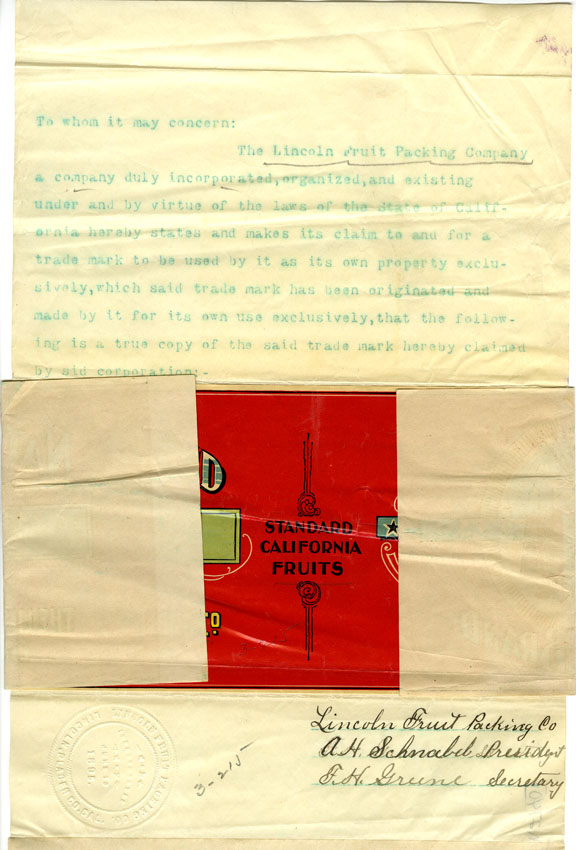 To whom it may concern:
The Lincoln Fruit Packing Company
a company duly incorporated,organized,and existing
under and by virtue of the laws of the State of Calif-
ornia hereby states and makes its claim to and for a
trade mark to be used by it as its own property exclu-
sively,which said trade mark has been originated and
made by it for its own use exclusively,that the follow-
ing is a true copy of the said trade mark hereby claimed
by sid corporation:-
D
STANDARD
CALIFORNIA
FRUITS
Lincoln Fruit Packing Co
A.H. Schnabel President
F.H. Greene Secretary
3-215